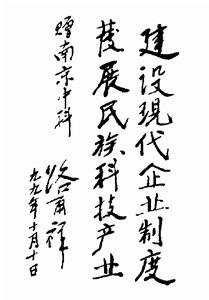 建设現代企业制度
發展民族科技产业
赠南京中科
路甬祥
九九年十月十日